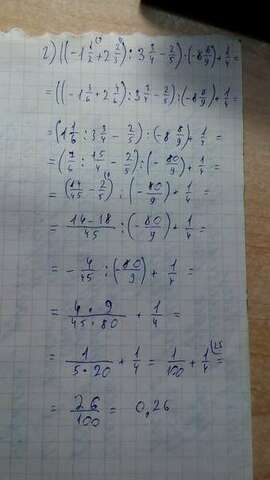 2) ((-1 1/2 + 2 2/3) : 3 3/4 - 2/5) : (-8 8/9) + 1/4 =
= ((-1 3/6 + 2 4/6) : 3 3/4 - 2/5) : (-8 8/9) + 1/4 =
= (1 1/6 : 3 3/4 - 2/5) : (-8 8/9) + 1/4 =
= (7/6 : 15/4 - 2/5) : (- 80/9) + 1/4 =
= (14/45 - 2/5) : (- 80/9) + 1/4 =
= (14-18)/45 : (- 80/9) + 1/4 =
= - 4/45 : (- 80/9) + 1/4 =
= (4 · 9)/(45 · 80) + 1/4 =
= 1/(5 · 20) + 1/4 = 1/100 + 1/4 (25 =
= 26/100 = 0,26